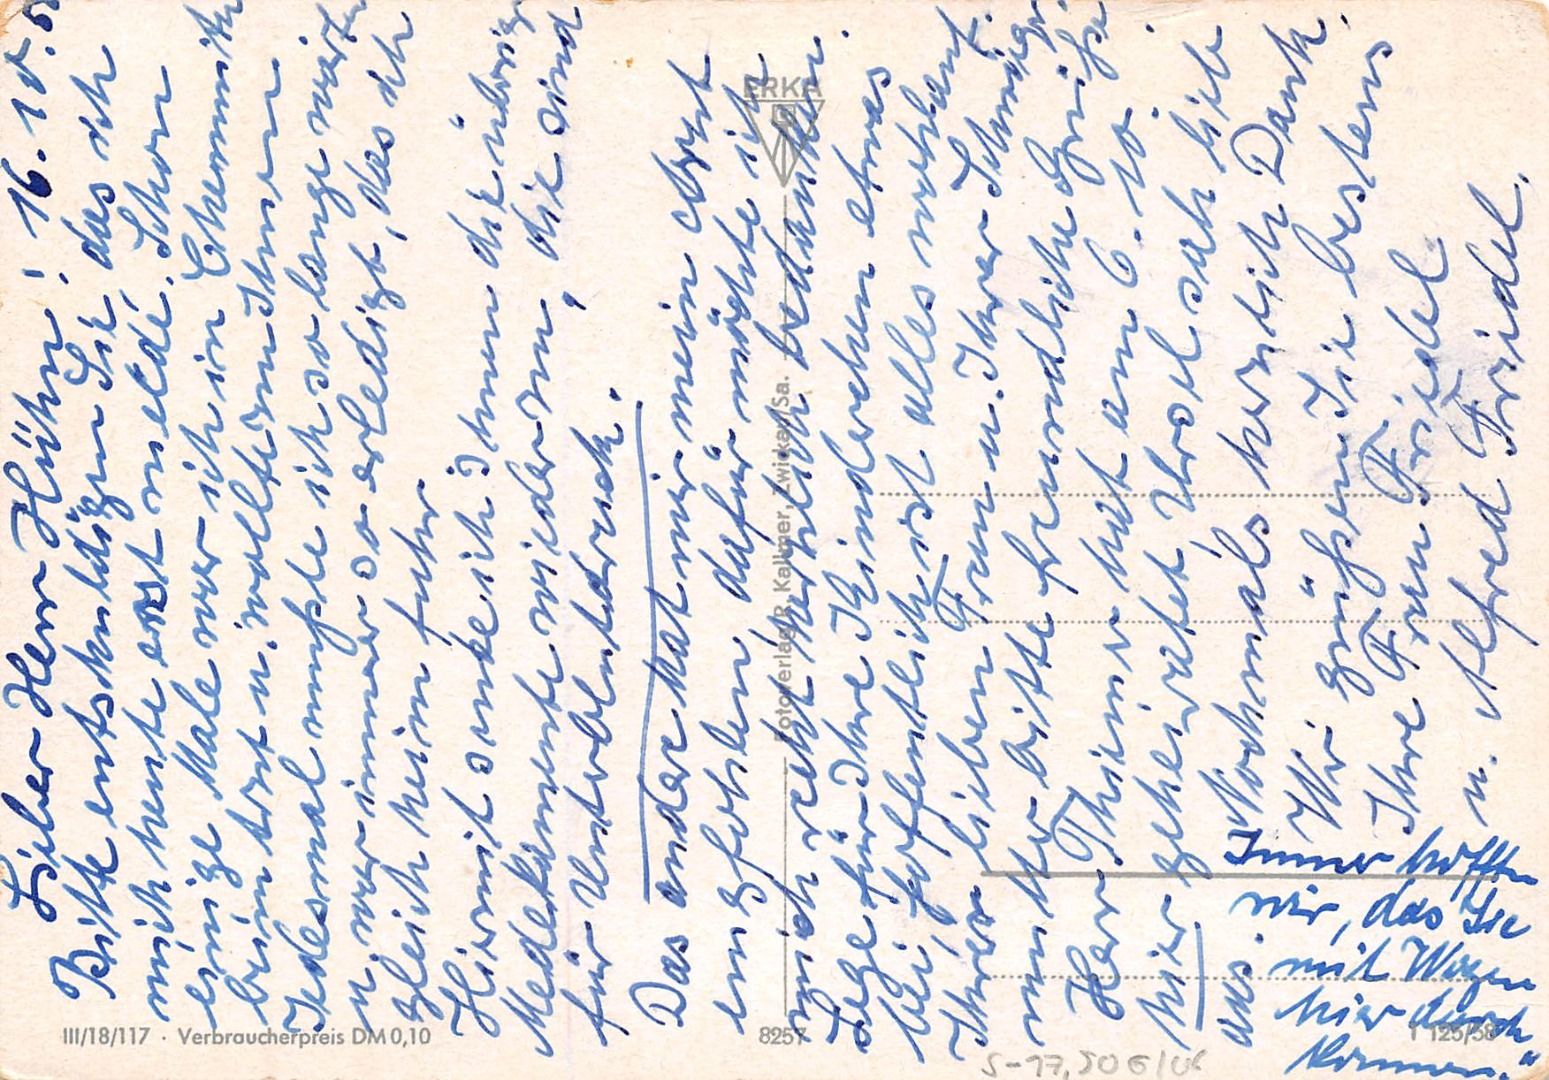 Lieber Herr Hühn! 16. 10. 5
Bitte entschuldigen Sie, das ich
mich heute erst melde. Schon
einige Male war ich in Chemnitz
beim Arzt u. wollte zu Ihnen
Jedesmal mußte ich so lange warten
u. war immer so erledigt, das ich
gleich heim fuhr
Hiermit sende ich Ihnen die übrigen
Medekamente wiederum, die sind
für Unterblutdruck.
Das andere hat mir mein Arzt
empfohlen dafür möchte ich
mich recht herzlich bedanken.
Lege für Ihre Kinderchen etwas
bei, hoffentlich ist alles wohlauf.
Ihrer lieben Frau u. Ihrer Schwieger
mutter bitte freundliche Grüße
Herr Theiner hat am 6. 10.
hier geheiratet, Ursel sah lieb
aus. Nochmals herzlich Dank.
Wir grüßen Sie bestens
Ihre Frau Friedel
u. Alfred Friedel.
Immer hofften
wir, das Sie
mit Wagen
hier durch
kommen."
ERKA
Fotoverlag R. Kallmer, Zwickau/Sa.
III/18/117 · Verbraucherpreis DM 0,10
8257
T 125/58